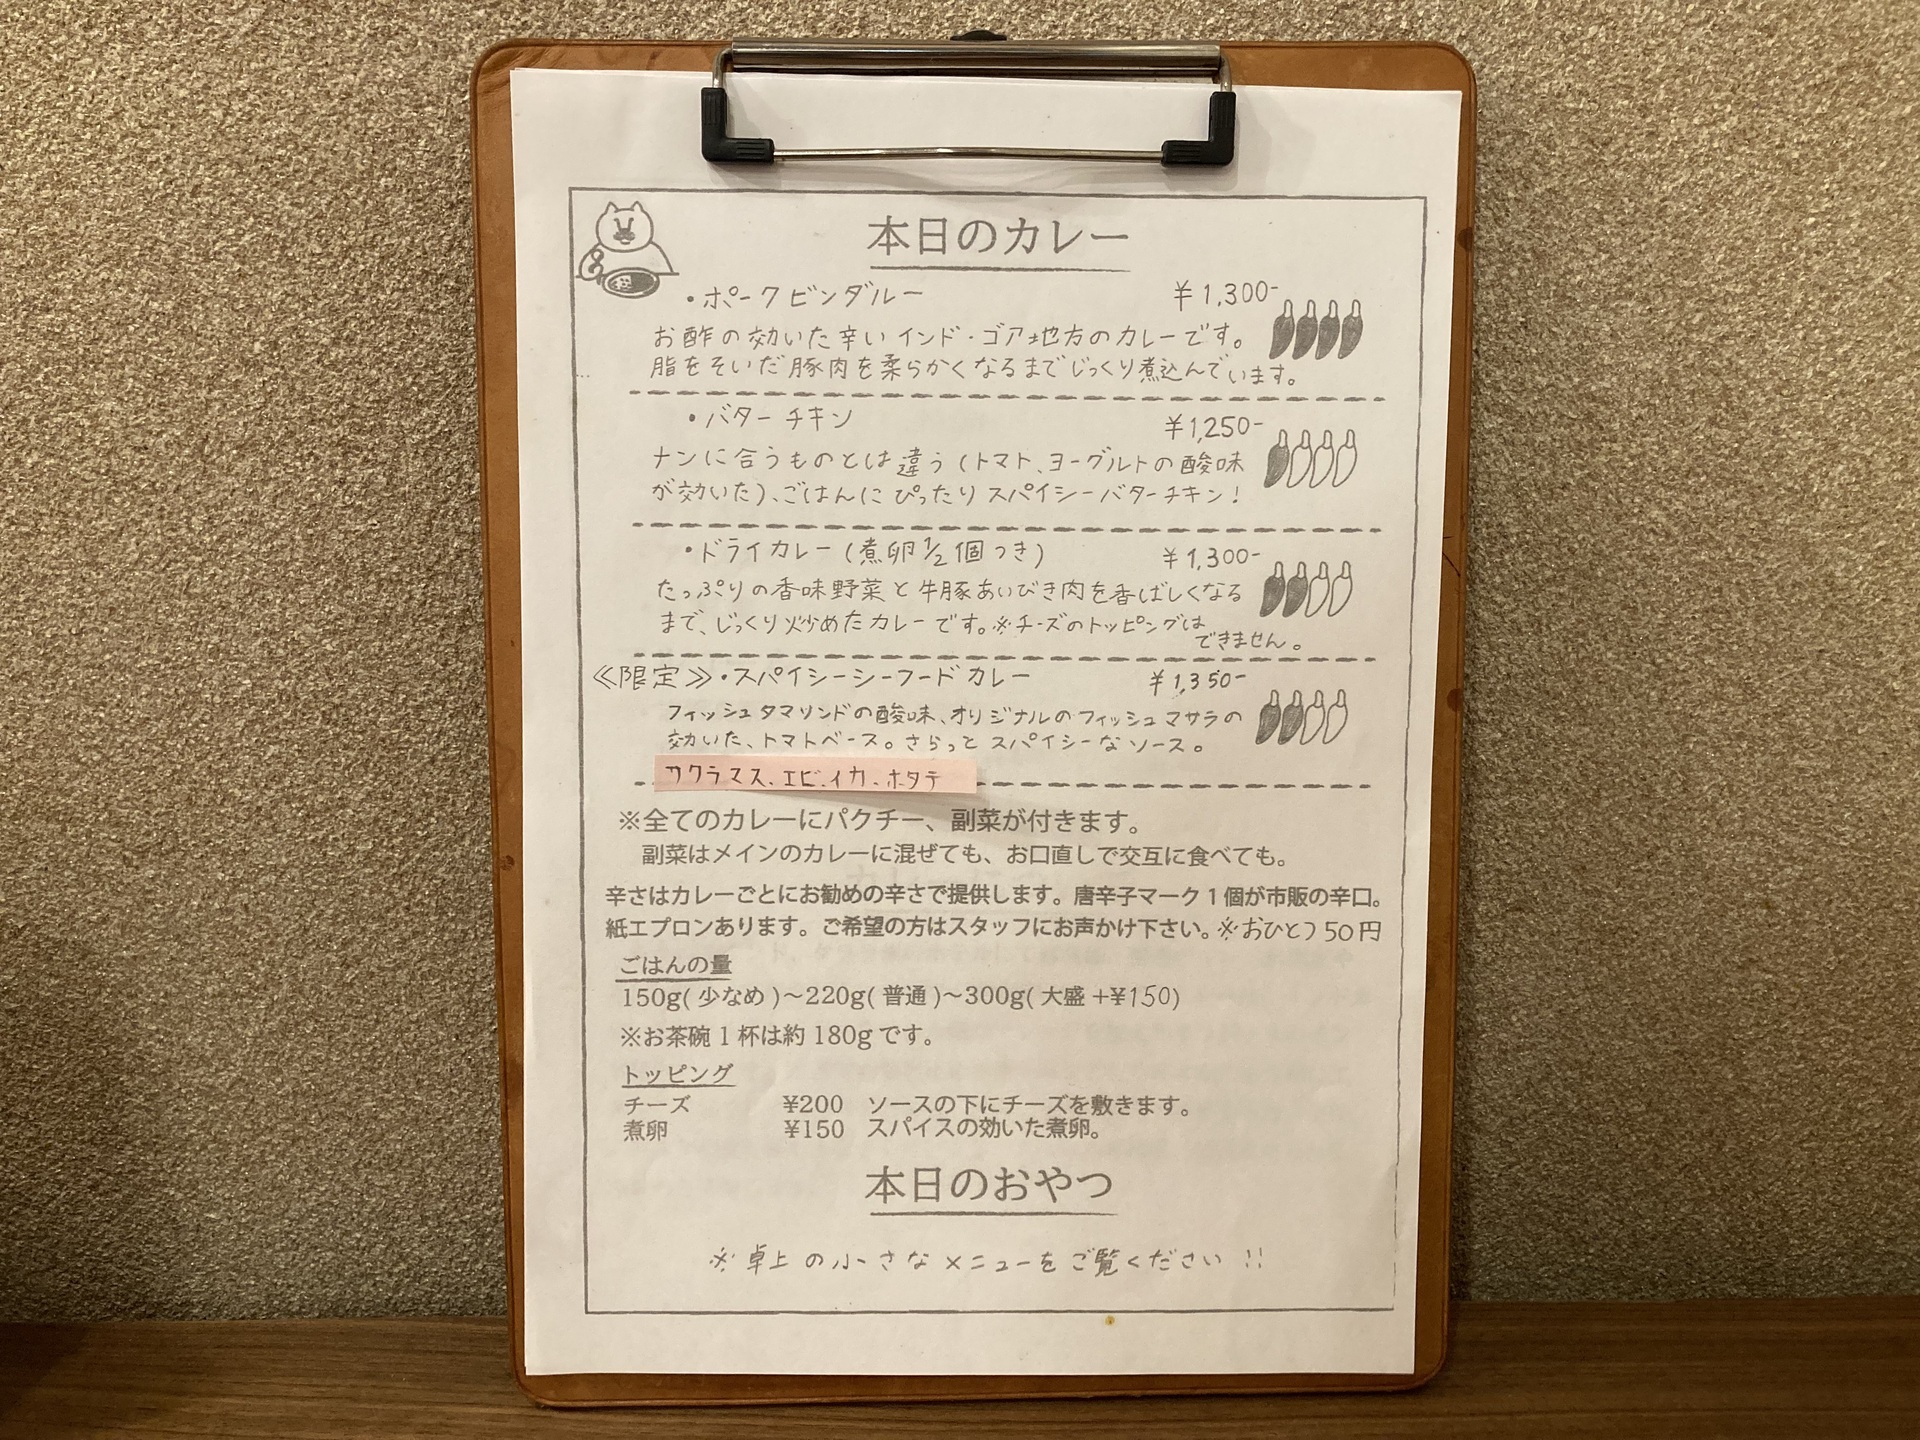 本日のカレー
・ポークビンダルー ¥1,300-
お酢の効いた辛いインド・ゴア地方のカレーです。
脂をそいだ豚肉を柔らかくなるまでじっくり煮込んでいます。
・バターチキン ¥1,250-
ナンに合うものとは違う(トマト、ヨーグルトの酸味
が効いた)、ごはんにぴったりスパイシーバターチキン!
・ドライカレー(煮卵1/2個つき) ¥1,300-
たっぷりの香味野菜と牛豚あいびき肉を香ばしくなる
まで、じっくり炒めたカレーです。※チーズのトッピングは
できません。
≪限定≫・スパイシーシーフードカレー ¥1,350-
フィッシュタマリンドの酸味、オリジナルのフィッシュマサラの
効いた、トマトベース。さらっとスパイシーなソース。
サクラマス、エビ、イカ、ホタテ
※全てのカレーにパクチー、副菜が付きます。
副菜はメインのカレーに混ぜても、お口直しで交互に食べても。
辛さはカレーごとにお勧めの辛さで提供します。唐辛子マーク1個が市販の辛口。
紙エプロンあります。ご希望の方はスタッフにお声かけ下さい。※おひとつ50円
ごはんの量
150g(少なめ)〜220g(普通)〜300g(大盛+¥150)
※お茶碗1杯は約180gです。
トッピング
チーズ ¥200 ソースの下にチーズを敷きます。
煮卵 ¥150 スパイスの効いた煮卵。
本日のおやつ
※卓上の小さなメニューをご覧ください!!